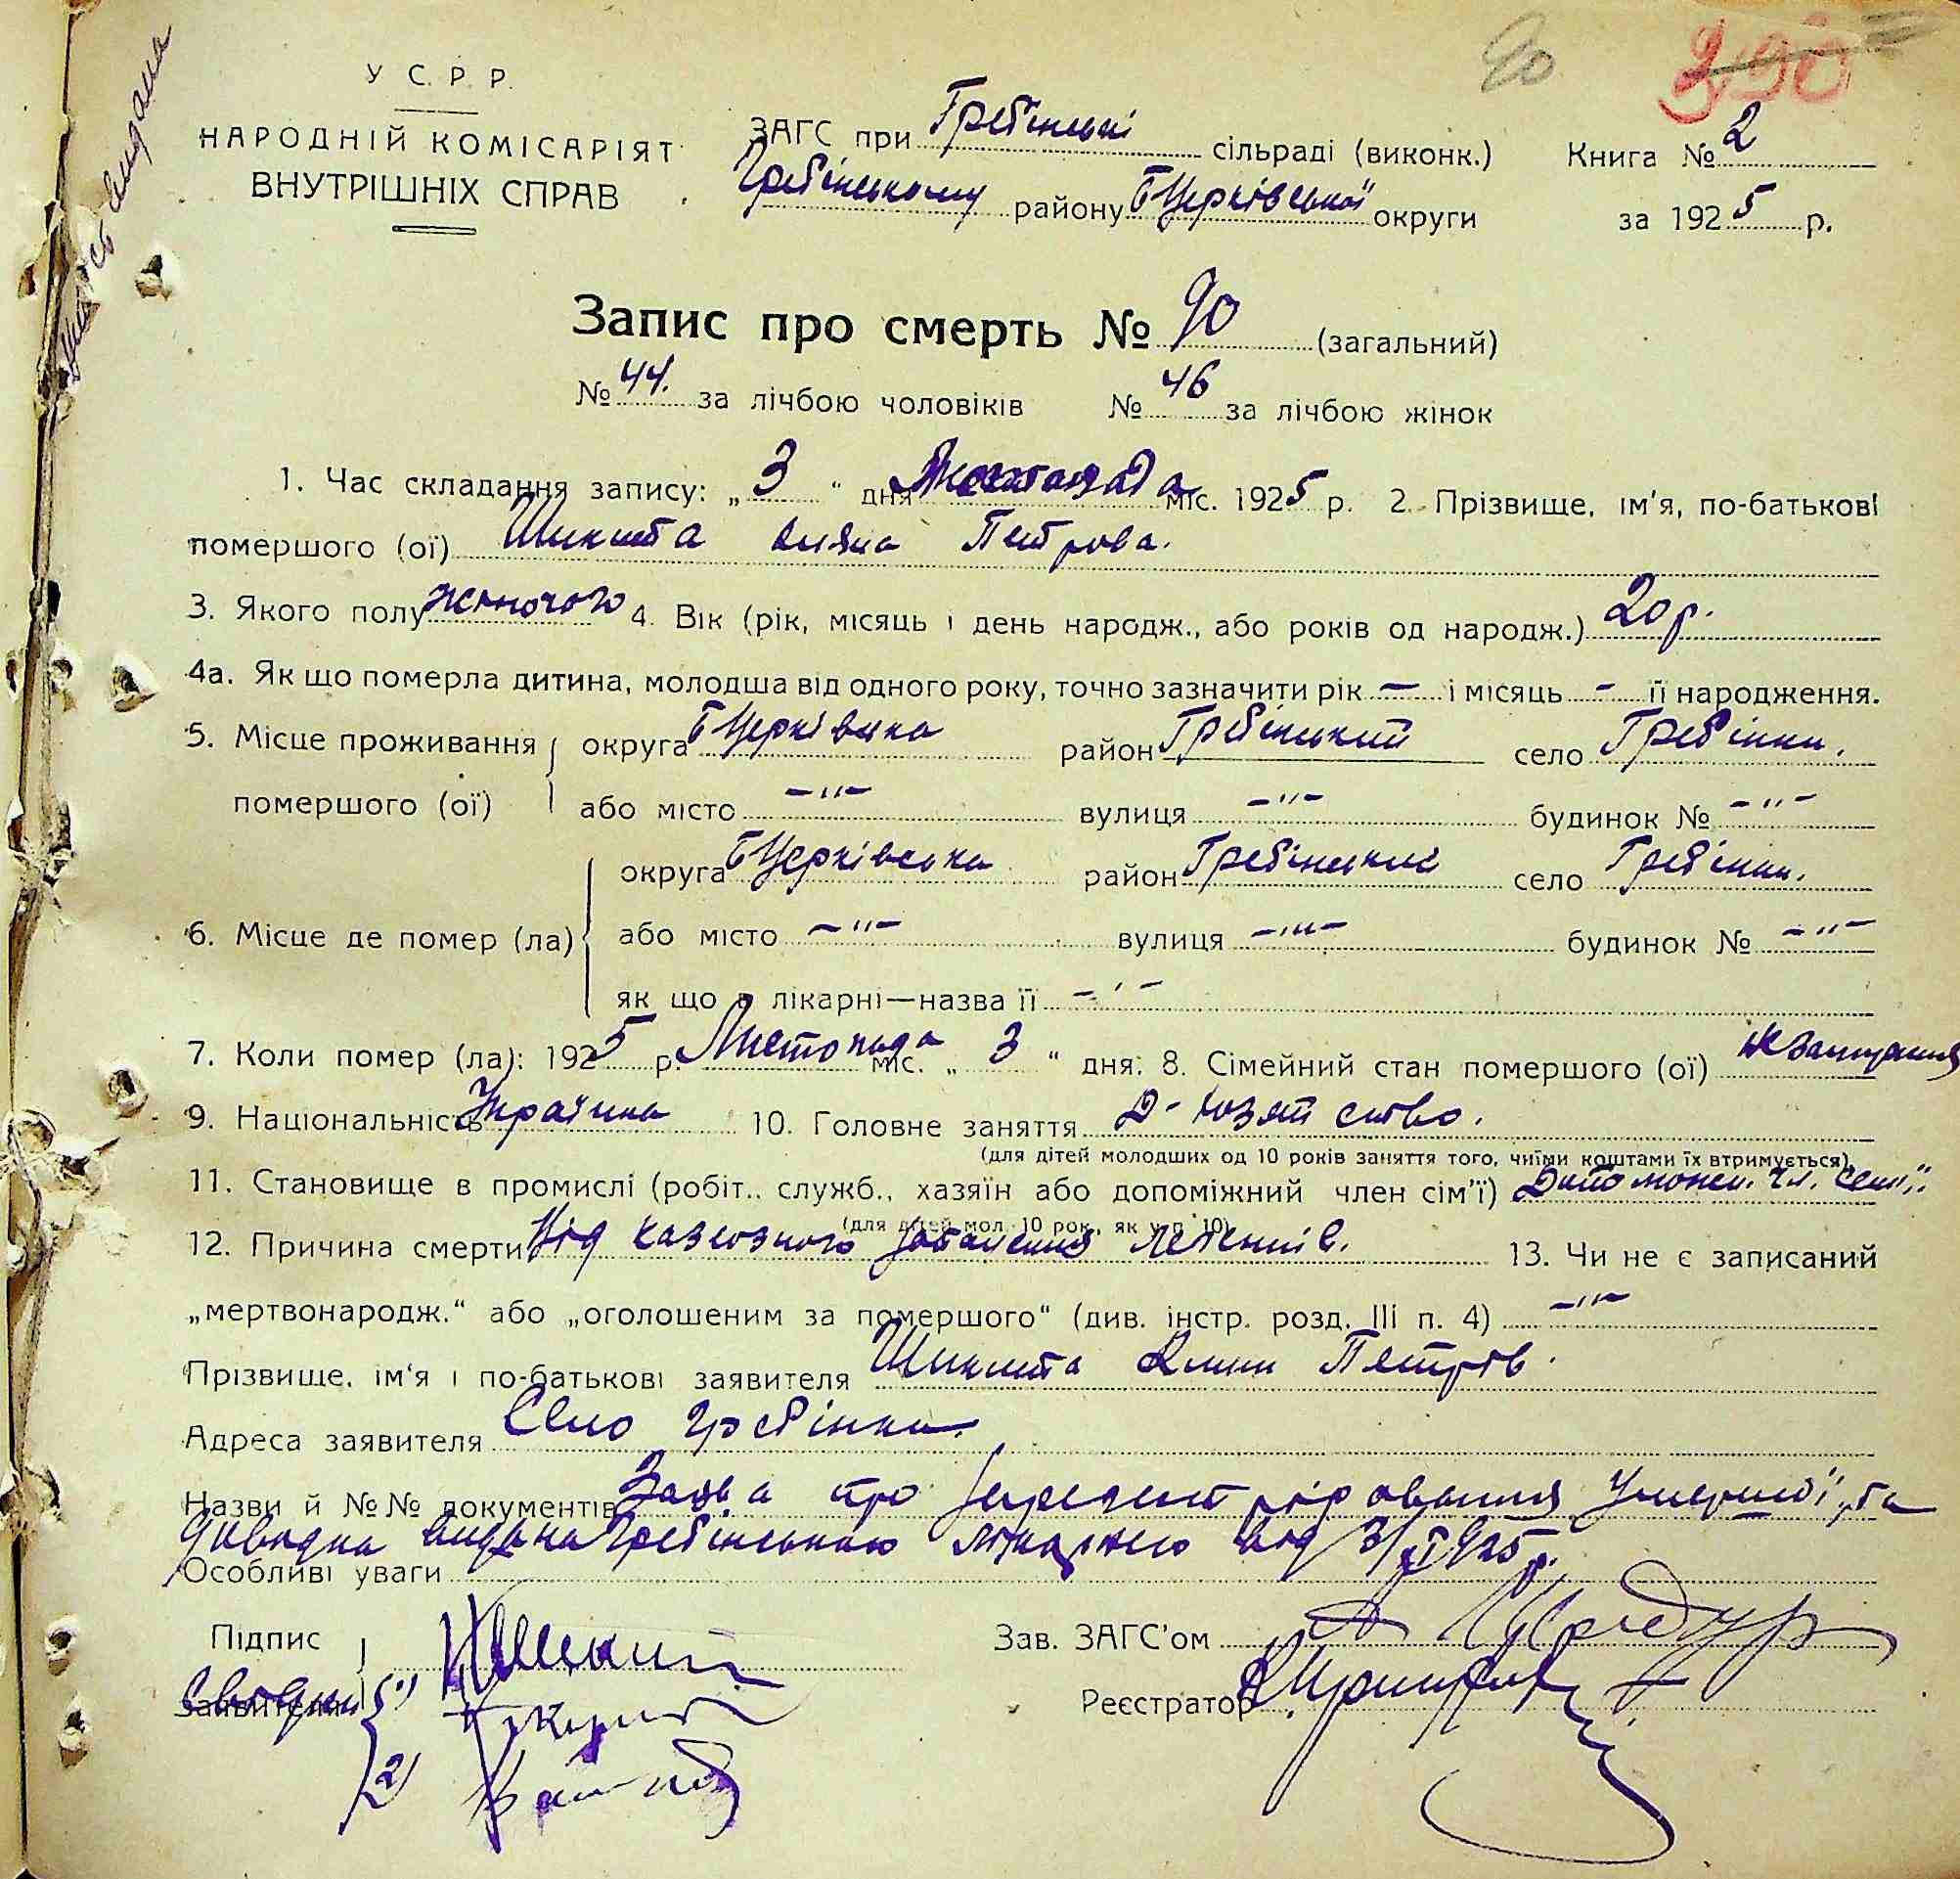 90
290
видана
У С. Р. Р.
НАРОДНІЙ КОМІСАРІЯТ
ВНУТРІШНІХ СПРАВ
ЗАГС при Гребінські сільраді (виконк.) Книга № 2
Гребінському району БЦерківської округи за 1925 р.
Запис про смерть № 90 (загальний)
№ 44. за лічбою чоловіків № 46 за лічбою жінок
1. Час складання запису: „ 3 “ дня Листопада міс. 1925 р. 2. Прізвище, ім'я, по-батькові
помершого (ої) Шикита Петрова.
3. Якого полу жіночого 4. Вік (рік, місяць і день народж., або років од народж.) 20 р.
4а. Як що померла дитина, молодша від одного року, точно зазначити рік — і місяць - її народження.
5. Місце проживання округа БЦерківська район Гребінський село Гребінки.
помершого (ої) або місто -"- вулиця -"- будинок № -"-
округа БЦерківська район Гребінський село Гребінки.
6. Місце де помер (ла) або місто -"- вулиця -"- будинок № -"-
як що в лікарні—назва її -"-
7. Коли помер (ла): 1925 р. Листопада міс. „ 3 “ дня. 8. Сімейний стан помершого (ої)
9. Національність Українка 10. Головне заняття
(для дітей молодших од 10 років заняття того, чиїми коштами їх втримується)
11. Становище в промислі (робіт., служб., хазяїн або допоміжний член сім'ї) Допоможн. чл. семї.
(для дітей мол. 10 рок., як у п. 10)
12. Причина смерти Від казеозного запалення легенів. 13. Чи не є записаний
„мертвонародж.“ або „оголошеним за помершого“ (див. інстр. розд. III п. 4) -"-
Прізвище, ім'я і по-батькові заявителя Шикита Петрів.
Адреса заявителя Село Гребінки.
Назви й №№ документів Заява про умершої, та
довідка видана Гребінською лікарнею від 3/XI 925 р.
Особливі уваги
Підпис Зав. ЗАГС'ом
заявителя 1) Реєстратор
2)